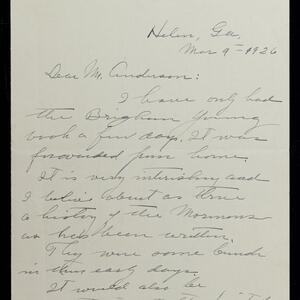 Helen, Ga,
Mar 9 - 1926
Dear Mr. Anderson:
I have only had
the Brigham Young
book a few days. It was
forwarded from home.
It is very interesting and
I believe about as true
a history of the Mormons
as has been written.
They were some bunch
in their early days.
It would also be